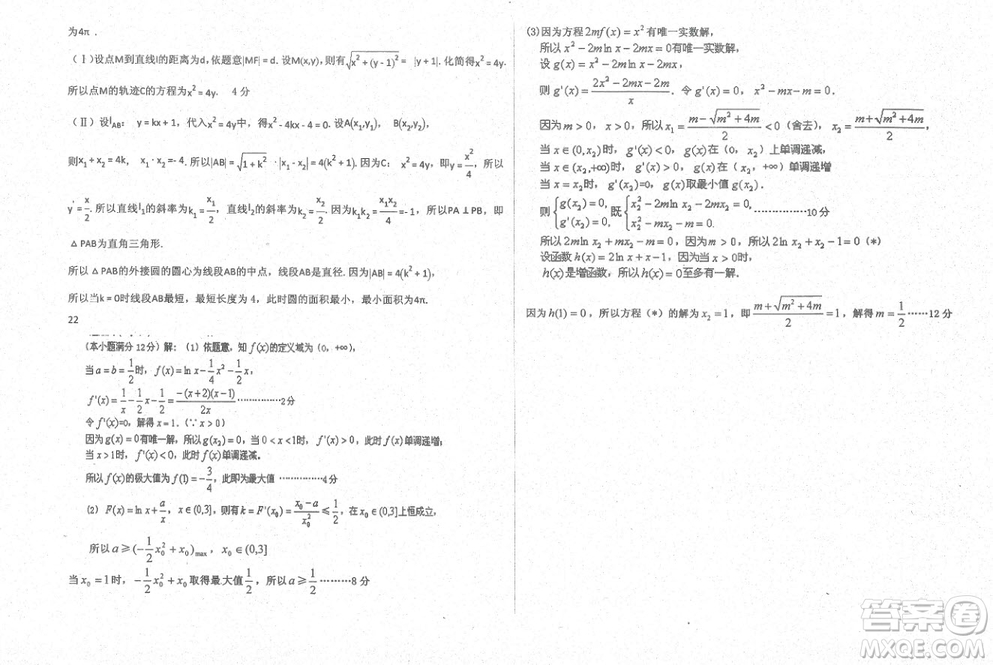 为4π .
(Ⅰ)设点M到直线l的距离为d,依题意|MF|=d.设M(x,y),则有√(x²+(y-1)²)= |y+1|.化简得x²=4y.
所以点M的轨迹C的方程为x²=4y. 4分
(Ⅱ)设l_AB: y=kx+1,代入x²=4y中,得x²-4kx-4=0.设A(x₁,y₁), B(x₂,y₂),
则x₁+x₂=4k, x₁·x₂=-4.所以|AB|=√(1+k²)·|x₁-x₂|=4(k²+1).因为C: x²=4y,即y=x²/4,所以
y'=x/2.所以直线l₁的斜率为k₁=x₁/2,直线l₂的斜率为k₂=x₂/2.因为k₁k₂=x₁x₂/4=-1,所以PA⊥PB,即
△PAB为直角三角形.
所以△PAB的外接圆的圆心为线段AB的中点,线段AB是直径.因为|AB|=4(k²+1),
所以当k=0时线段AB最短,最短长度为4,此时圆的面积最小,最小面积为4π.
22
(本小题满分12分)解:(1)依题意,知f(x)的定义域为(0,+∞),
当a=b=1/2时,f(x)=ln x-1/4x²-1/2x,
f'(x)=1/x-1/2x-1/2=-(x+2)(x-1)/2x ……………2分
令f'(x)=0,解得x=1.(∵x>0)
因为g(x)=0有唯一解,所以g(x₂)=0,当0<x<1时,f'(x)>0,此时f(x)单调递增;
当x>1时,f'(x)<0,此时f(x)单调递减.
所以f(x)的极大值为f(1)=-3/4 ……………4分
(2) F(x)=ln x+a/x,x∈(0,3],则有k=F'(x₀)=(x₀-a)/x₀²≤1/2,在x₀∈(0,3]上恒成立,
所以a≥(-1/2x₀²+x₀)max,x₀∈(0,3]
当x₀=1时,-1/2x₀²+x₀取得最大值1/2,所以a≥1/2………8分
(3)因为方程2mf(x)=x²有唯一实数解,
所以x²-2mln x-2mx=0有唯一实数解,
设g(x)=x²-2mln x-2mx,
则g'(x)=(2x²-2mx-2m)/x.令g'(x)=0,x²-mx-m=0.
因为m>0,x>0,所以x₁=(m-√(m²+4m))/2<0(舍去),x₂=(m+√(m²+4m))/2,
当x∈(0,x₂)时,g'(x)<0,g(x)在(0,x₂)上单调递减,
当x∈(x₂,+∞)时,g'(x)>0,g(x)在(x₂,+∞)单调递增
当x=x₂时,g'(x₂)=0,g(x)取最小值g(x₂).
则{g(x₂)=0,g'(x₂)=0,既{x₂²-2mln x₂-2mx₂=0,x₂²-mx₂-m=0. ……………10分
所以2mln x₂+mx₂-m=0,因为m>0,所以2ln x₂+x₂-1=0(*)
设函数h(x)=2ln x+x-1,因为当x>0时,
h(x)是增函数,所以h(x)=0至多有一解.
因为h(1)=0,所以方程(*)的解为x₂=1,即(m+√(m²+4m))/2=1,解得m=1/2……12分
答案圈
MXQE.COM